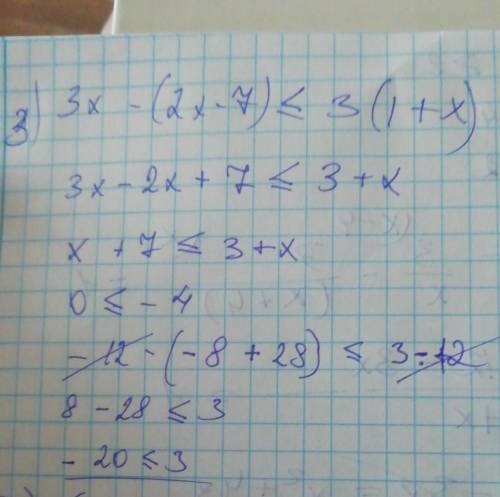 3) 3x - (2x - 7) ≤ 3 (1 + x)
3x - 2x + 7 ≤ 3 + x
x + 7 ≤ 3 + x
0 ≤ - 4
- 12 - (- 8 + 28) ≤ 3 - 12
8 - 28 ≤ 3
- 20 ≤ 3